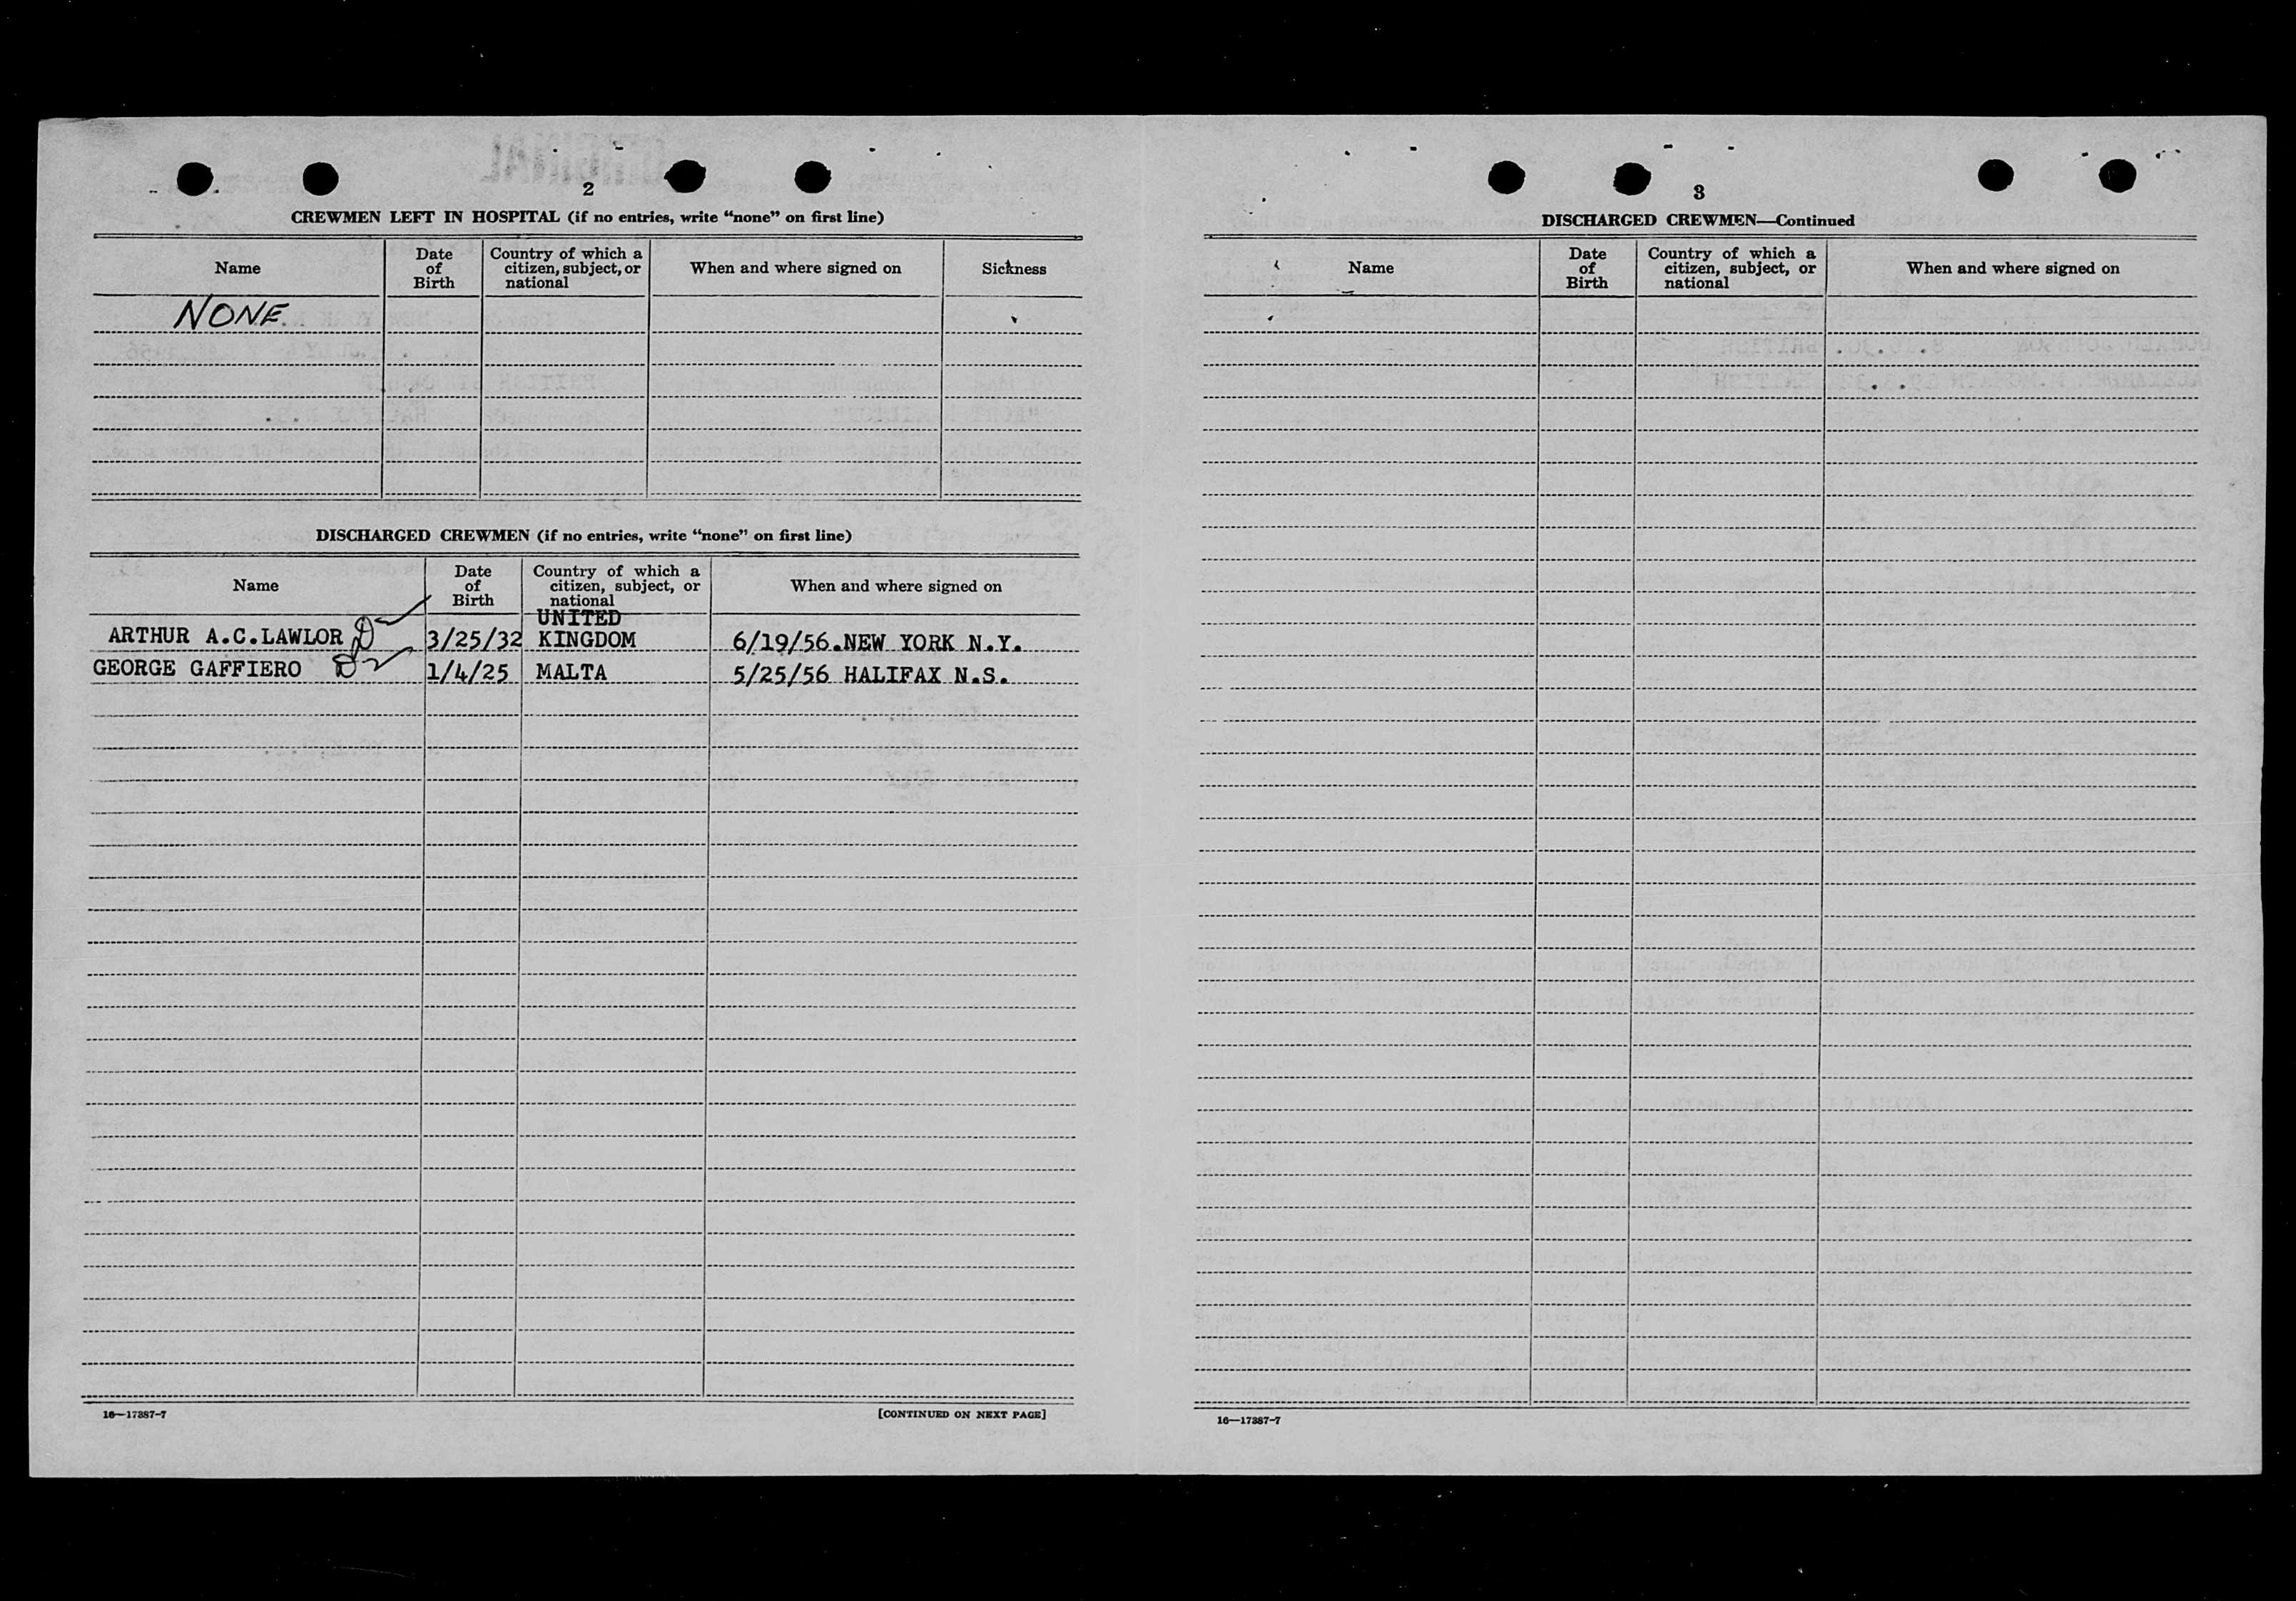 2
CREWMEN LEFT IN HOSPITAL (if no entries, write “none” on first line)
Name
Date of Birth
Country of which a citizen, subject, or national
When and where signed on
Sickness
NONE
DISCHARGED CREWMEN (if no entries, write “none” on first line)
Name
Date of Birth
Country of which a citizen, subject, or national
When and where signed on
ARTHUR A.C.LAWLOR D 3/25/32 UNITED KINGDOM 6/19/56.NEW YORK N.Y.
GEORGE GAFFIERO D 1/4/25 MALTA 5/25/56 HALIFAX N.S.
16—17387-7
[CONTINUED ON NEXT PAGE]
3
DISCHARGED CREWMEN—Continued
Name
Date of Birth
Country of which a citizen, subject, or national
When and where signed on
16—17387-7